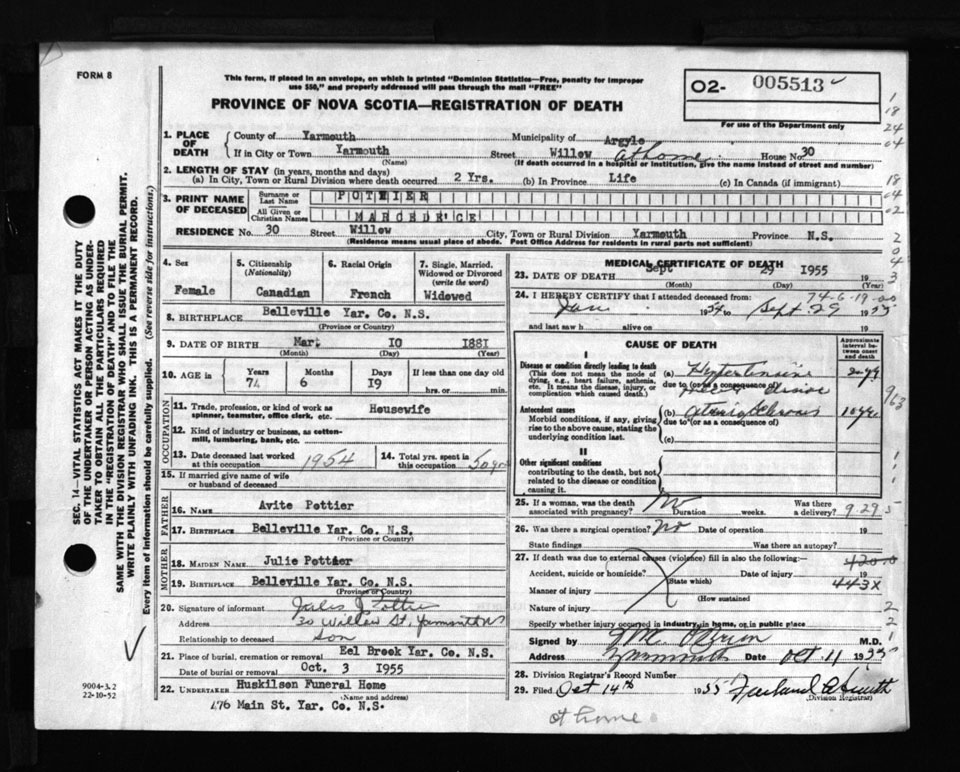 FORM 8
This form, if placed in an envelope, on which is printed "Dominion Statistics—Free, penalty for improper
use $50," and properly addressed will pass through the mail "FREE"
PROVINCE OF NOVA SCOTIA—REGISTRATION OF DEATH
O2- 005513
For use of the Department only
1
18
24
04
18
04
02
2
0
4
3
963
SEC. 14—VITAL STATISTICS ACT MAKES IT THE DUTY
OF THE UNDERTAKER OR PERSON ACTING AS UNDER-
TAKER TO OBTAIN ALL THE PARTICULARS REQUIRED
IN THE "REGISTRATION OF DEATH" AND TO FILE THE
SAME WITH THE DIVISION REGISTRAR WHO SHALL ISSUE THE BURIAL PERMIT.
WRITE PLAINLY WITH UNFADING INK. THIS IS A PERMANENT RECORD.
Every item of information should be carefully supplied. (See reverse side for instructions.)
9004-3.2
22-10-52
1. PLACE OF DEATH
County of Yarmouth Municipality of Argyle
If in City or Town Yarmouth Street Willow at home House No 30
(Name) (If death occurred in a hospital or institution, give the name instead of street and number)
2. LENGTH OF STAY (in years, months and days)
(a) In City, Town or Rural Division where death occurred 2 Yrs. (b) In Province Life (c) In Canada (if immigrant)
3. PRINT NAME OF DECEASED
Surname or Last Name POTHIER
All Given or Christian Names
RESIDENCE No. 30 Street Willow City, Town or Rural Division Yarmouth Province N.S.
(Residence means usual place of abode. Post Office Address for residents in rural parts not sufficient)
4. Sex
Female
5. Citizenship
(Nationality)
Canadian
6. Racial Origin
French
7. Single, Married, Widowed or Divorced
(write the word)
Widowed
8. BIRTHPLACE Belleville Yar. Co. N.S.
(Province or Country)
9. DATE OF BIRTH Mar. 10 1881
(Month) (Day) (Year)
10. AGE in
Years 74
Months 6
Days 19
If less than one day old
hrs. or min.
OCCUPATION
11. Trade, profession, or kind of work as
spinner, teamster, office clerk, etc. Housewife
12. Kind of industry or business, as cotton-
mill, lumbering, bank, etc.
13. Date deceased last worked
at this occupation 1954
14. Total yrs. spent in
this occupation 50 yrs
15. If married give name of wife
or husband of deceased
FATHER
16. NAME Avite Pottier
17. BIRTHPLACE Belleville Yar. Co. N.S.
(Province or Country)
MOTHER
18. MAIDEN NAME Julie Pottier
19. BIRTHPLACE Belleville Yar. Co. N.S.
(Province or Country)
20. Signature of informant Jules J Pottier
Address 30 Willow St, Yarmouth NS
Relationship to deceased son
21. Place of burial, cremation or removal Eel Brook Yar. Co. N.S.
Date of burial or removal Oct. 3 1955
22. UNDERTAKER Huskilson Funeral Home
(Name and address)
176 Main St. Yar. Co. N.S.
MEDICAL CERTIFICATE OF DEATH
23. DATE OF DEATH Sept 29 1955 19
(Month) (Day)
24. I HEREBY CERTIFY that I attended deceased from: 74-6-19-00
Jan 1954 to Sept. 29 1955
and last saw h alive on 19
CAUSE OF DEATH
Approximate interval between onset and death
I
Disease or condition directly leading to death
(This does not mean the mode of
dying, e.g., heart failure, asthenia,
etc. It means the disease, injury, or
complication which caused death.)
(a) Hypertensive
due to (or as a consequence of)
Antecedent causes
Morbid conditions, if any, giving
rise to the above cause, stating the
underlying condition last.
(b)
due to (or as a consequence of)
(c)
10 yrs
II
Other significant conditions
contributing to the death, but not
related to the disease or condition
causing it.
25. If a woman, was the death
associated with pregnancy? No Duration weeks. Was there
a delivery? 9-29-5
26. Was there a surgical operation? No Date of operation 19
State findings Was there an autopsy?
27. If death was due to external causes (violence) fill in also the following:
420.0
Accident, suicide or homicide? Date of injury 19
(State which)
443X
Manner of injury
(How sustained
Nature of injury
Specify whether injury occurred in industry, in home, or in public place
Signed by G M. O'Brien M.D.
Address Yarmouth Date Oct 11 1955
28. Division Registrar's Record Number
29. Filed Oct 14th 1955
(Division Registrar)
at home